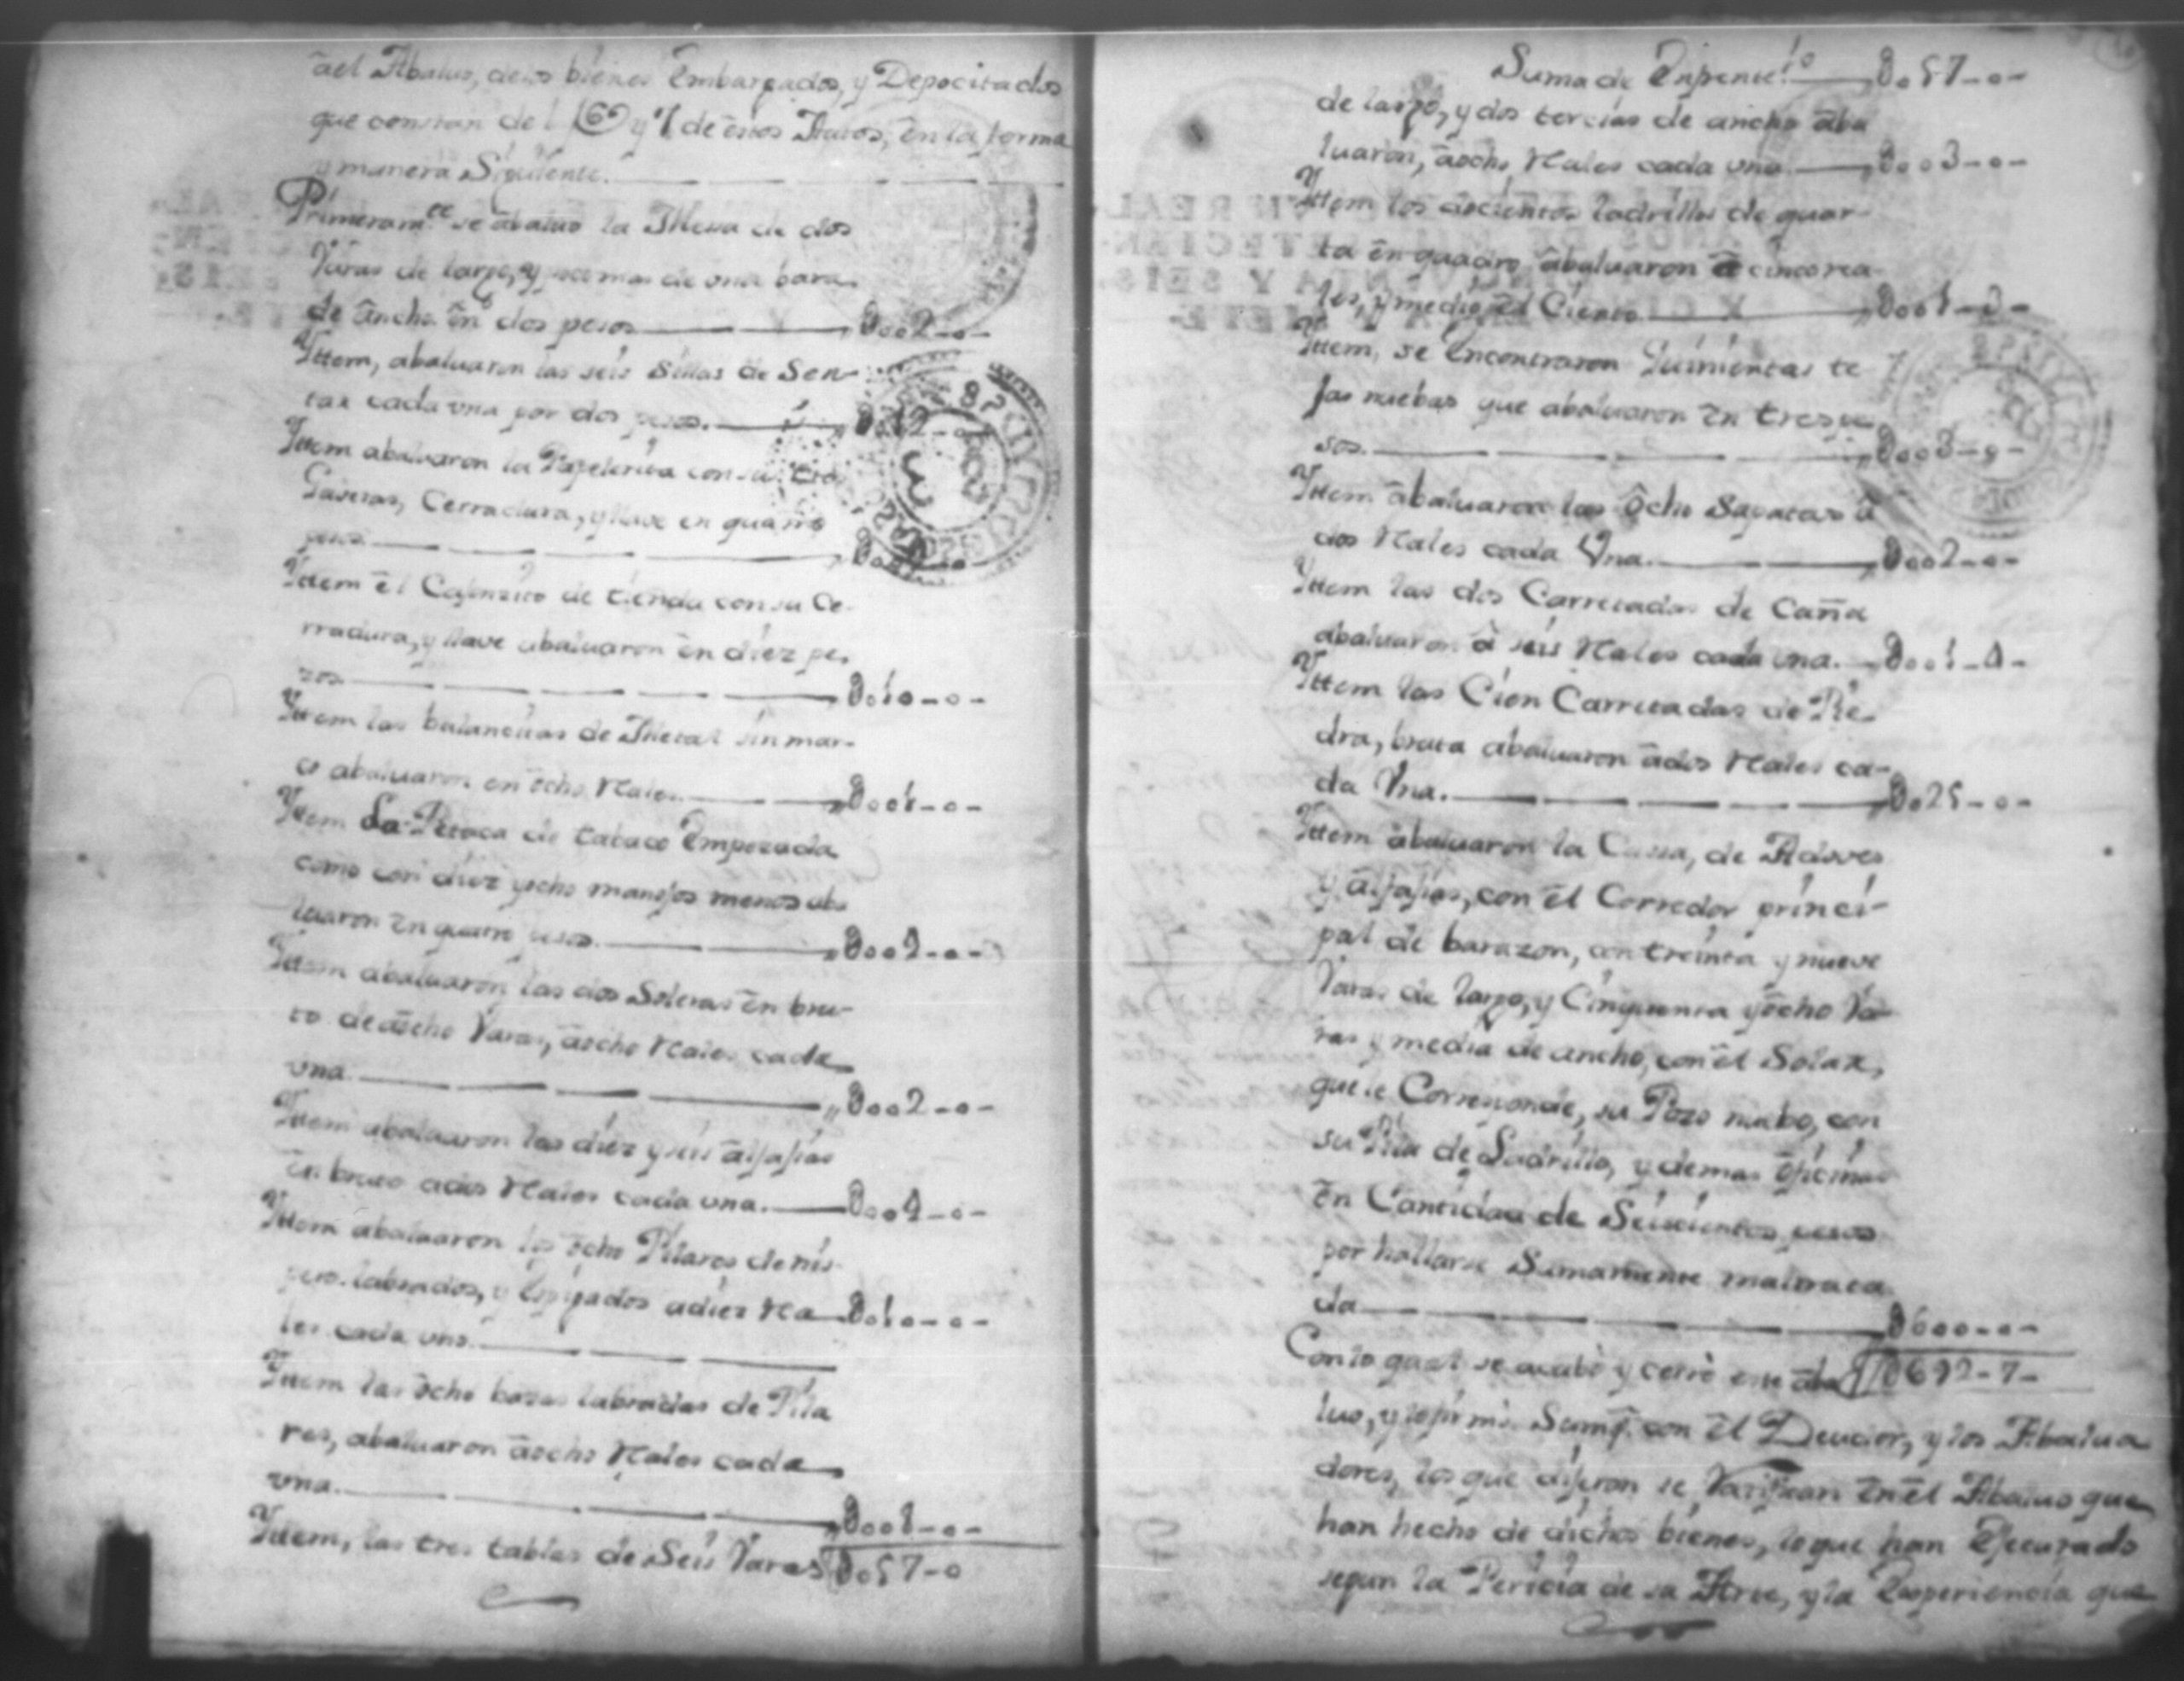 âel Abaluo, delos bienes Embargados, y Depocitados
que constan del f 6 y 7 de estos Autos, en la forma
y manera Siguiente.
Primeramte se âbaluo la Mesa de dos
Varas de largo, y de una bara
de âncho ên dos pesos 0002-0-
Yttem, abaluaron las seis Sillas de Sen-
tar cada una por dos pesos. 0012-0-
Yttem abaluaron la Papelerita con sus tres
Gaveras, Cerradura, y llave en quatro
pesos
Yttem êl Cajonsito de tienda con su Ce-
rradura, y llave abaluaron ên diez pe-
zos 0010-0-
Yttem las balansitas de Metal sin mar-
co abaluaron en ôcho Rales 0001-0-
Yttem La Petaca de tabaco Empezada
como con diez yocho manojos menos aba
luaron ên quatro pesos 0004-0-
Yttem abaluaron las dos Soleras ên bru-
to de âocho Varas, âocho Rales cada
una 0002-0-
Yttem abaluaron las diez y seis alfajias
ên bruto ados Rales cada una. 0004-0-
Yttem abaluaron los ôcho Pilares de nis-
pero labrados, y Espigados adiez Rea 0010-0-
les cada uno.
Yttem las ôcho basas labradas de Pila
res, abaluaron âocho Rales cada
una. 0008-0-
Yttem, las tres tablas de Seis Varas 0057-0
Suma de Enfrente 0057-0-
de largo, y dos tercias de ancho âba
luaron, âocho Rales cada una 0003-0-
Yttem los docientos ladrillos de quar-
ta ên quadro âbaluaron â cinco rea
les, y medio êl Ciento 0001-3-
Yttem, se Encontraron Quinientas te
jas nuebas que abaluaron ên tres pe
sos. 0003-0-
Yttem âbaluaron las ôcho Sapatas â
dos Rales cada Vna. 0002-0-
Yttem las dos Carretadas de Caña
abaluaron â seis Rales cada una. 0001-4-
Yttem las Cien Carretadas de Pie-
dra, bruta abaluaron âdos Rales ca-
da Vna. 0025-0-
Yttem âbaluaron la Cassa, de Adoves
y âlfajias, con êl Corredor princi-
pal de barazon, con treinta y nueve
Varas de largo, y Cinquenta yôcho Va-
ras y media de ancho, con êl Solar,
que le Corresponde, su Pozo nuebo, con
su Pila de Ladrillo, y demas ôficinas
ên Cantidad de Seiscientos pesos
por hallarse Sumamente maltrata
da 0600-0-
Con lo qual se acabò y cerrò este âba 0692-7-
luo, y lo firmò Sumd. con êl Deudor, y los Abalua
dores, los que dijeron se Varifican ên êl Abaluo que
han hecho de dichos bienes, lo que han Ejecutado
segun la Pericia de su Arte, y la Esperiencia que